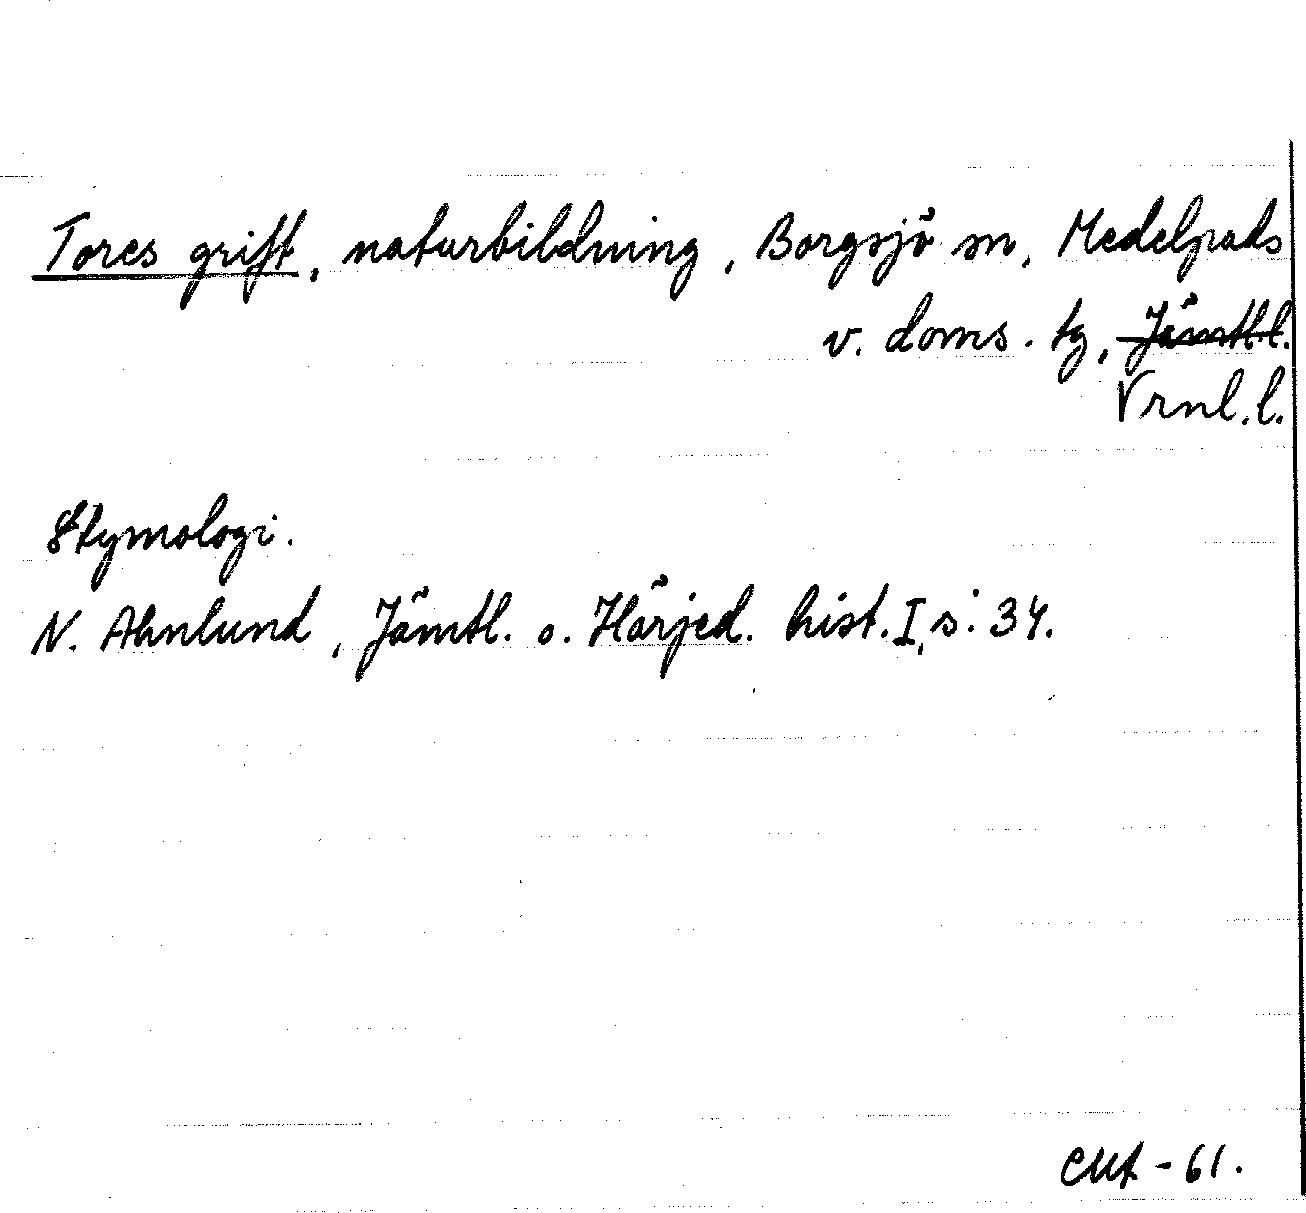 Tores grift, naturbildning, Borgsjö sn, Medelpads
v. doms. tg, Jämtl.l.
Vrnl.l.
Etymologi.
N. Ahnlund, Jämtl. o. Härjed. hist. I, s. 34.
-61.